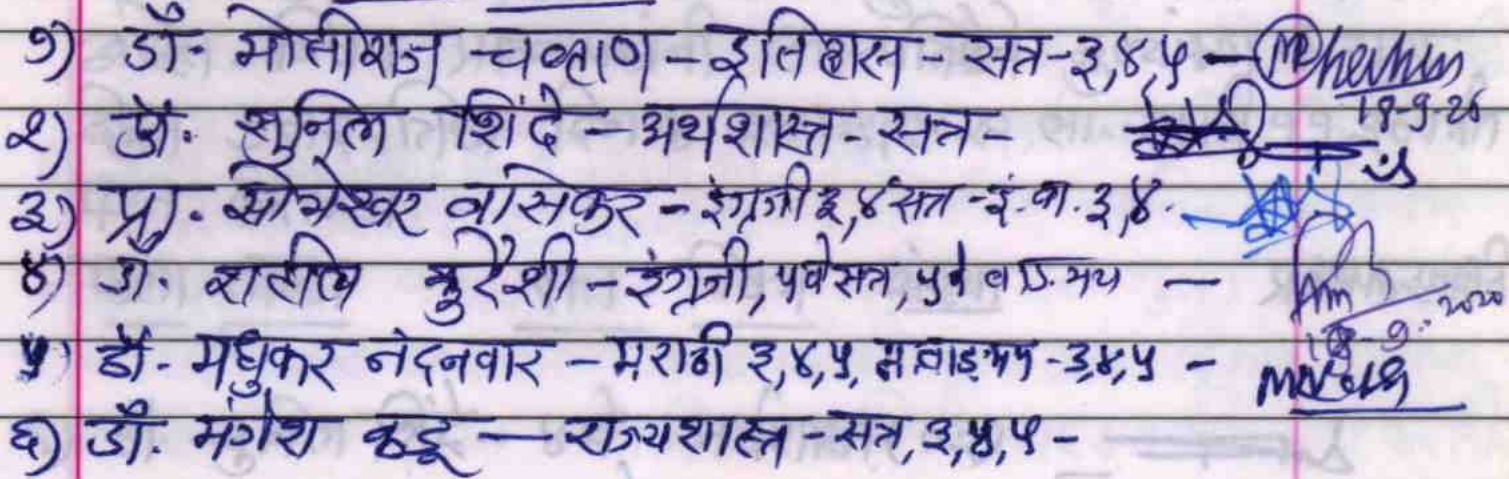 १) डॉ. मोतीराज चव्हाण - इतिहास - सत्र - ३,४,५ -
२) डॉ. सुनिल शिंदे - अर्थशास्त्र - सत्र -
३) प्रा. सोमेश्वर वासेकर - इंग्रजी ३,४ सत्र - इं. वा. ३,४.
४) डॉ. कुरेशी - इंग्रजी, ५वे सत्र, ५वे वाङमय -
५) डॉ. मधुकर नंदनवार - मराठी ३,४,५, म वाङमय - ३,४,५ -
६) डॉ. मंगेश कडू - राज्यशास्त्र - सत्र, ३,४,५ -